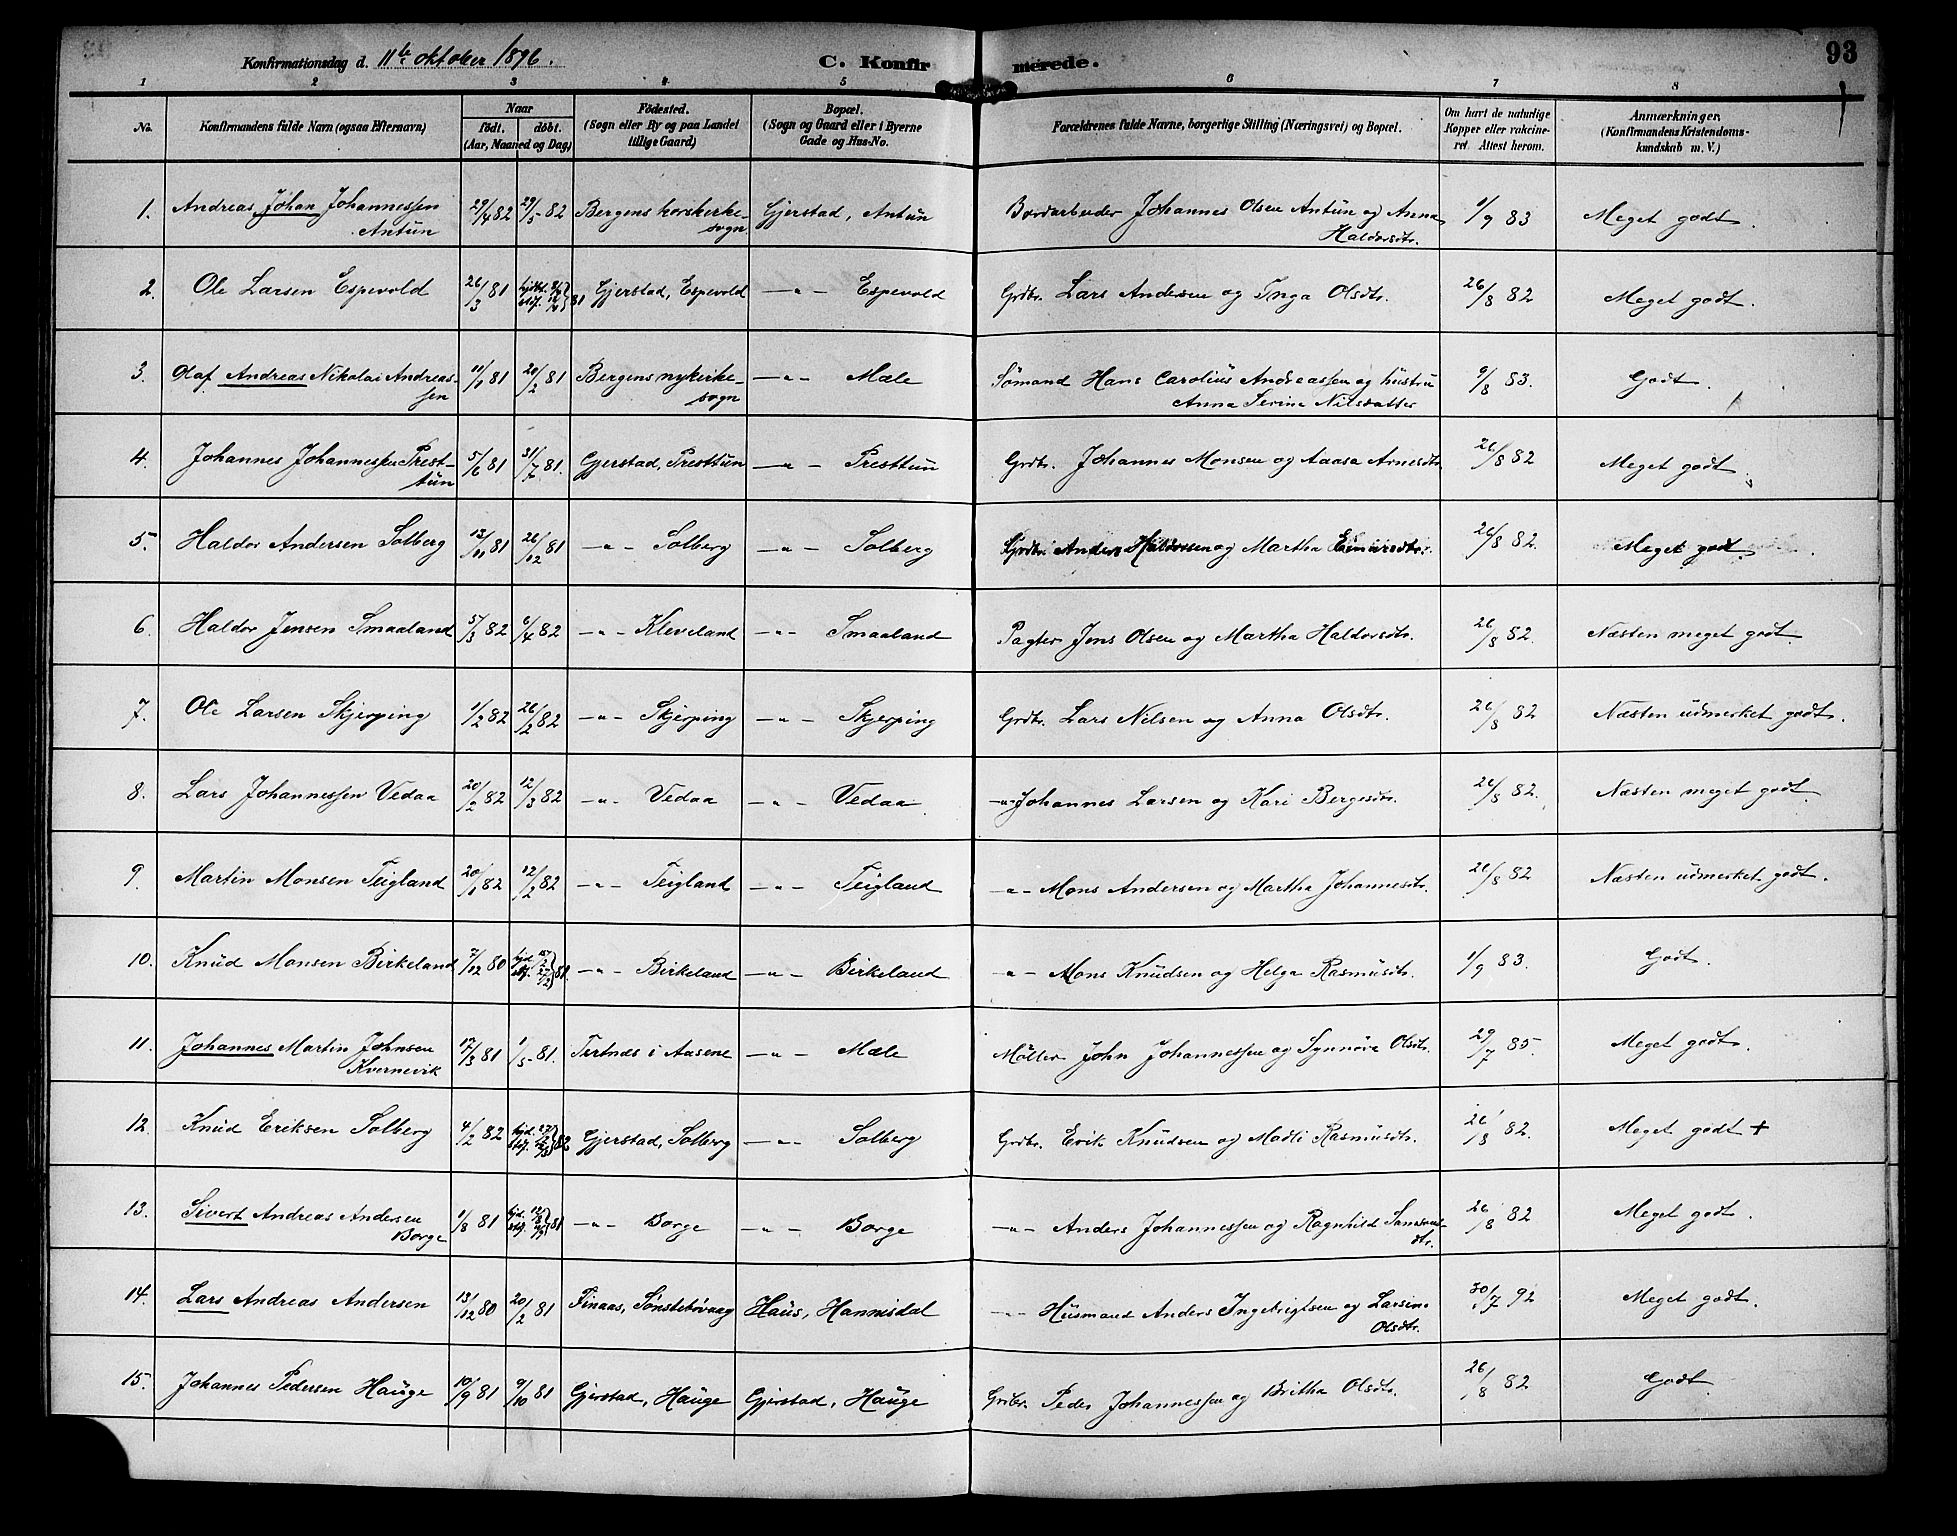 Konfirmationsdag d. 11te oktober 1896. C. Konfirmerede. 93
1 2 3 4 5 6 7 8
No. Konfirmandens fulde Navn (ogsaa Efternavn) Naar födt. döbt. (Aar, Maaned og Dag) Födested. (Sogn eller By og paa Landet tillige Gaard) Bopæl. (Sogn og Gaard eller i Byerne Gade og Hus-No. Forældrenes fulde Navne, borgerlige Stilling (Næringsvei) og Bopæl. Om havt de naturlige Kopper eller vakcineret. Attest herom. Anmærkninger. (Konfirmandens Kristendomskundskab m. V.)
1. Andreas Johan Johannessen 29/4 82 29/5 82 Bergens korskirke- Gjerstad, Antun Bordarbeider Johannes Olsen Antun og Anna 1/9 83 Meget godt.
Antun sogn Haldorsdtr.
2. Ole Larsen Espevold 26/3 81 81 Gjerstad, Espevold —"— Espevold Grdbr. Lars Andersen og Inga Olsdtr. 26/8 82 Meget godt.
3. Olaf Andreas Nikolai Andreas- 11/1 81 20/2 81 Bergens nykirke- —"— Mæle Sömand Hans Carolius Andreassen og hustru 9/8 83. Godt.
sen sogn Anna Serine Nilsdatter
4. Johannes Johannessen Prest- 5/6 81 31/7 81. Gjerstad, Presttun —"— Presttun Grdbr. Johannes Monsen og Aasa Arnesdtr. 26/8 82 Meget godt.
tun
5. Haldor Andersen Solberg 13/11 81 26/12 81 —"— Solberg —"— Solberg Grdbr. Anders Haldorsen og Martha Einarsdtr. 26/8 82. Meget godt.
6. Haldor Jensen Smaaland 5/3 82 6/4 82 —"— Kleveland —"— Smaaland Pagter Jens Olsen og Martha Haldorsdtr. 26/8 82. Næsten meget godt.
7. Ole Larsen Skjerping 1/2 82 26/2 82 —"— Skjerping —"— Skjerping Grdbr. Lars Nilsen og Anna Olsdtr. 26/8 82 Næsten udmerket godt.
8. Lars Johannessen Vedaa 20/2 82 12/3 82 —"— Vedaa —"— Vedaa —"— Johannes Larsen og Kari Bergesdtr. 26/8 82. Næsten meget godt.
9. Martin Monsen Teigland 20/1 82 12/2 82 —"— Teigland —"— Teigland —"— Mons Andersen og Martha Johannesdtr. 26/8 82 Næsten udmerket godt.
10. Knud Monsen Birkeland 7/12 80 81. —"— Birkeland —"— Birkeland —"— Mons Knudsen og Helga Rasmusdtr. 1/9 83. Godt.
11. Johannes Martin Johnsen 17/3 81 1/5 81. Tertnæs i Aasene —"— Mæle Möller John Johannessen og Synnöve Olsdtr. 29/7 85. Meget godt.
Kvernevik
12. Knud Eriksen Solberg 4/2 82 82 Gjerstad, Solberg —"— Solberg Grdbr. Erik Knudsen og Madli Rasmusdtr. 26/8 82. Meget godt +
13. Sivert Andreas Andersen 1/8 81 81 —"— Borge —"— Borge —"— Anders Johannessen og Ragnhild 26/8 82 Meget godt.
Borge dtr.
14. Lars Andreas Andersen 13/12 80 20/2 81 Finaas, Sönstebövaag Haus, Hannisdal —"— Husmand Anders Ingebrigtsen og Larsine 30/7 92 Meget godt.
Olsdtr.
15. Johannes Pedersen Hauge 10/9 81 9/10 81 Gjerstad, Hauge Gjerstad, Hauge Grdbr. Peder Johannessen og Britha Olsdtr. 26/8 82 Godt.